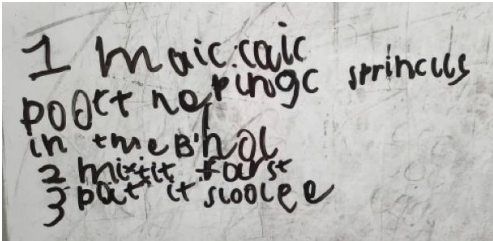 1 maic.caic
poott nopingc sprinculs
in the B'hol
2 mixtit farst
3 pat it sloolee